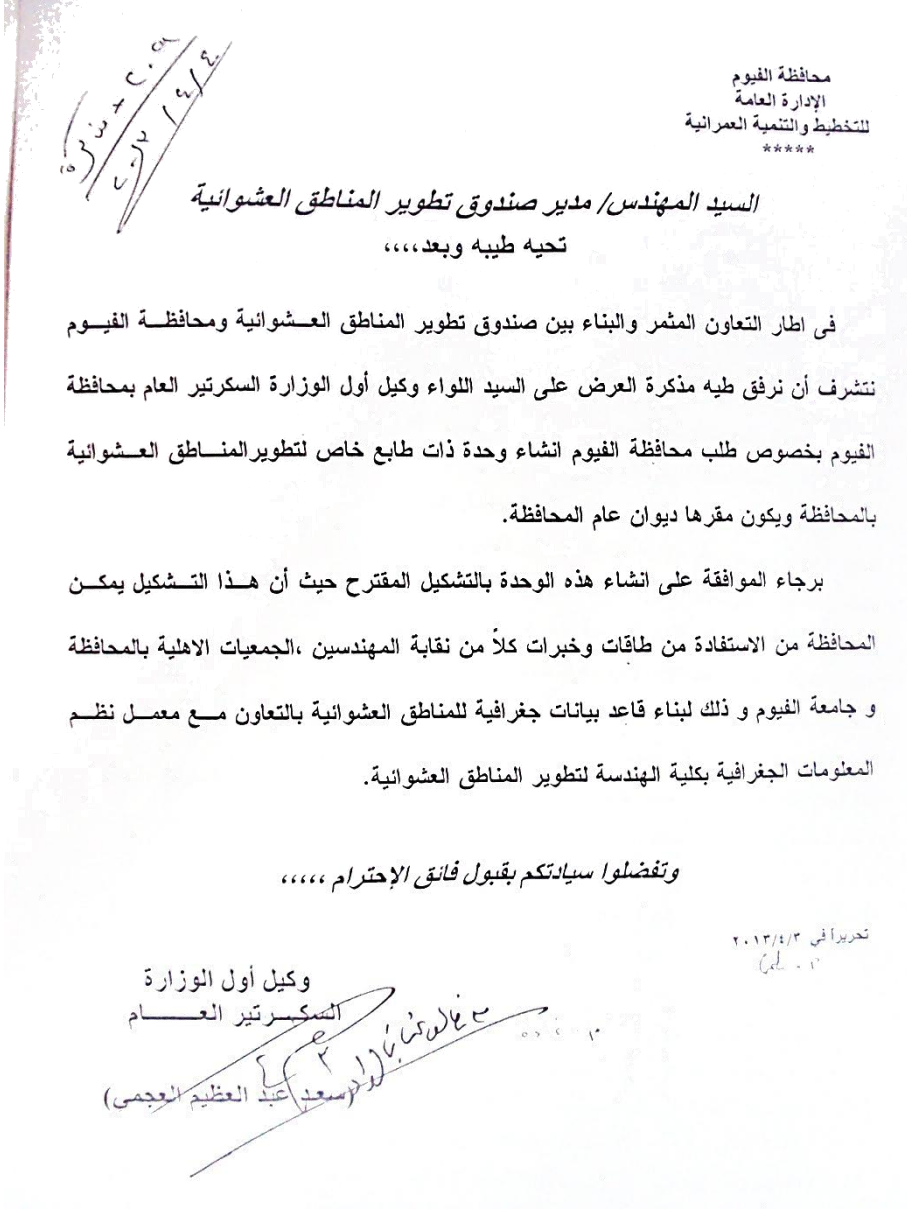 محافظة الفيوم
الإدارة العامة
للتخطيط والتنمية العمرانية
*****
السيد المهندس/ مدير صندوق تطوير المناطق العشوائية
تحيه طيبه وبعد،،،،
فى اطار التعاون المثمر والبناء بين صندوق تطوير المناطق العشوائية ومحافظة الفيوم
نتشرف أن نرفق طيه مذكرة العرض على السيد اللواء وكيل أول الوزارة السكرتير العام بمحافظة
الفيوم بخصوص طلب محافظة الفيوم انشاء وحدة ذات طابع خاص لتطويرالمناطق العشوائية
بالمحافظة ويكون مقرها ديوان عام المحافظة.
برجاء الموافقة على انشاء هذه الوحدة بالتشكيل المقترح حيث أن هذا التشكيل يمكن
المحافظة من الاستفادة من طاقات وخبرات كلاً من نقابة المهندسين ،الجمعيات الاهلية بالمحافظة
و جامعة الفيوم و ذلك لبناء قاعد بيانات جغرافية للمناطق العشوائية بالتعاون مع معمل نظم
المعلومات الجغرافية بكلية الهندسة لتطوير المناطق العشوائية.
وتفضلوا سيادتكم بقبول فائق الإحترام ،،،،،
تحريراً في ٢٠١٣/٤/٣
وكيل أول الوزارة
السكرتير العام
(سعد عبد العظيم العجمى)